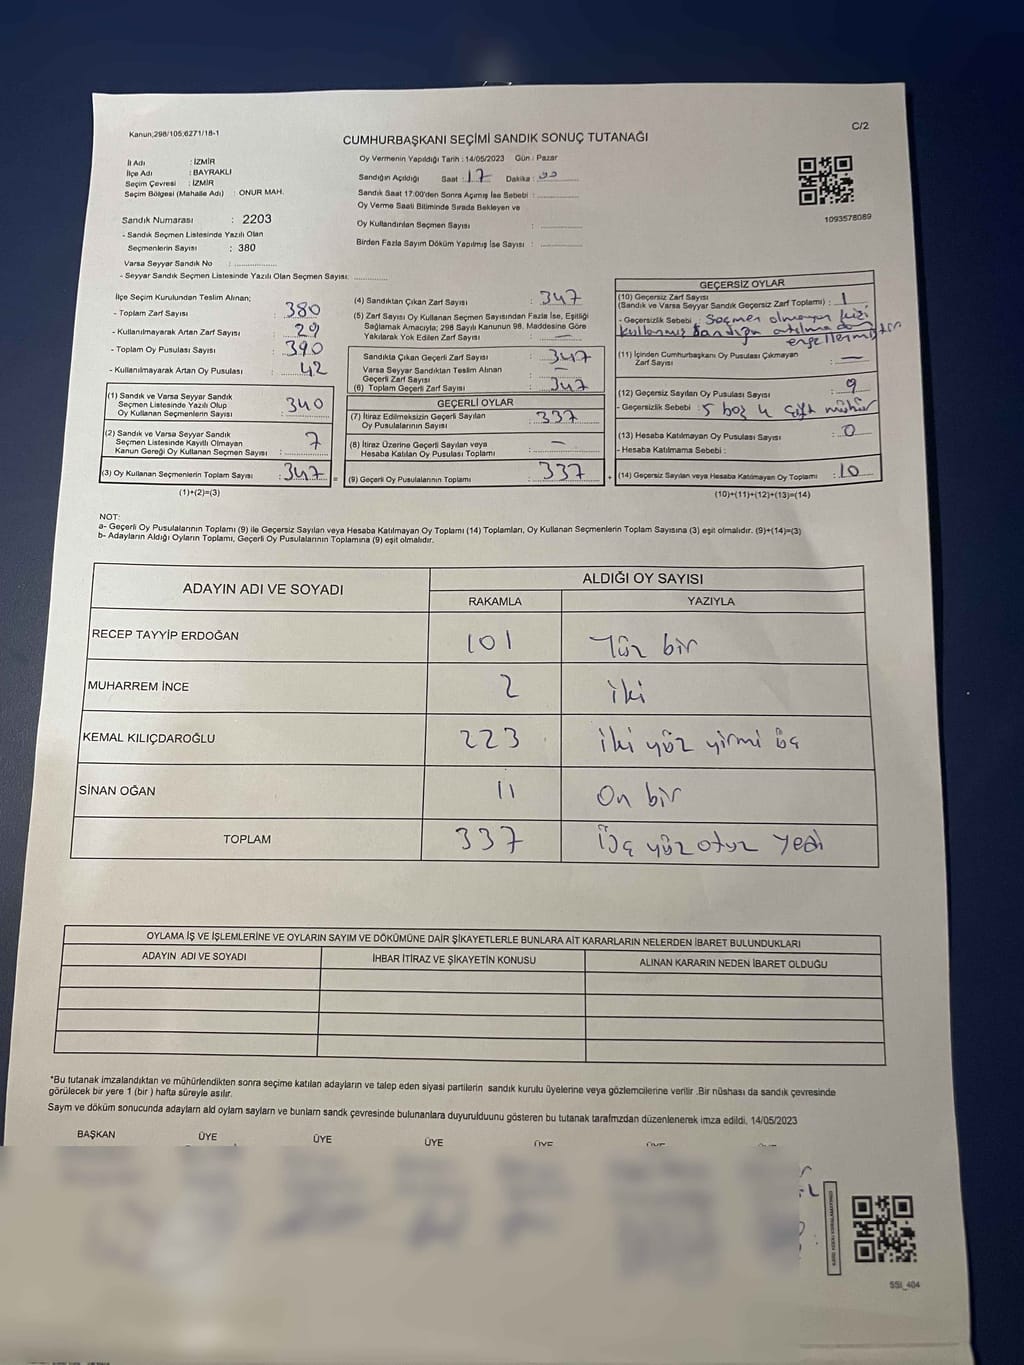 Kanun;298/105;6271/18-1
C/2
CUMHURBAŞKANI SEÇİMİ SANDIK SONUÇ TUTANAĞI
İl Adı : İZMİR
İlçe Adı : BAYRAKLI
Seçim Çevresi : İZMİR
Seçim Bölgesi (Mahalle Adı) : ONUR MAH.
Oy Vermenin Yapıldığı Tarih : 14/05/2023 Gün : Pazar
Sandığın Açıldığı Saat : 17 Dakika : 00
Sandık Saat 17:00'den Sonra Açımış İse Sebebi :
Oy Verme Saati Bitiminde Sırada Bekleyen ve
Oy Kullandırılan Seçmen Sayısı :
Birden Fazla Sayım Döküm Yapılmış İse Sayısı :
1093578089
Sandık Numarası : 2203
- Sandık Seçmen Listesinde Yazılı Olan
Seçmenlerin Sayısı : 380
Varsa Seyyar Sandık No :
- Seyyar Sandık Seçmen Listesinde Yazılı Olan Seçmen Sayısı:
İlçe Seçim Kurulundan Teslim Alınan;
- Toplam Zarf Sayısı : 380
- Kullanılmayarak Artan Zarf Sayısı : 29
- Toplam Oy Pusulası Sayısı : 390
- Kullanılmayarak Artan Oy Pusulası : 42
(1) Sandık ve Varsa Seyyar Sandık
Seçmen Listesinde Yazılı Olup
Oy Kullanan Seçmenlerin Sayısı : 340
(2) Sandık ve Varsa Seyyar Sandık
Seçmen Listesinde Kayıtlı Olmayan
Kanun Gereği Oy Kullanan Seçmen Sayısı : 7
(3) Oy Kullanan Seçmenlerin Toplam Sayısı : 347
(1)+(2)=(3)
(4) Sandıktan Çıkan Zarf Sayısı : 347
(5) Zarf Sayısı Oy Kullanan Seçmen Sayısından Fazla İse, Eşitliği
Sağlamak Amacıyla; 298 Sayılı Kanunun 98. Maddesine Göre
Yakılarak Yok Edilen Zarf Sayısı : —
Sandıkta Çıkan Geçerli Zarf Sayısı : 347
Varsa Seyyar Sandıktan Teslim Alınan
Geçerli Zarf Sayısı : —
(6) Toplam Geçerli Zarf Sayısı : 347
GEÇERLİ OYLAR
(7) İtiraz Edilmeksizin Geçerli Sayılan
Oy Pusulalarının Sayısı : 337
(8) İtiraz Üzerine Geçerli Sayılan veya
Hesaba Katılan Oy Pusulası Toplamı : —
(9) Geçerli Oy Pusulalarının Toplamı : 337
GEÇERSİZ OYLAR
(10) Geçersiz Zarf Sayısı
(Sandık ve Varsa Seyyar Sandık Geçersiz Zarf Toplamı) : 1
- Geçersizlik Sebebi : Seçmen olmayan kişi
kullanmış sandığa atılmadan
engellenmiştir
(11) İçinden Cumhurbaşkanı Oy Pusulası Çıkmayan
Zarf Sayısı : —
(12) Geçersiz Sayılan Oy Pusulası Sayısı : 9
- Geçersizlik Sebebi : 5 boş 4 çift mühür
(13) Hesaba Katılmayan Oy Pusulası Sayısı : 0
- Hesaba Katılmama Sebebi :
(14) Geçersiz Sayılan veya Hesaba Katılmayan Oy Toplamı : 10
(10)+(11)+(12)+(13)=(14)
NOT:
a- Geçerli Oy Pusulalarının Toplamı (9) ile Geçersiz Sayılan veya Hesaba Katılmayan Oy Toplamı (14) Toplamları, Oy Kullanan Seçmenlerin Toplam Sayısına (3) eşit olmalıdır. (9)+(14)=(3)
b- Adayların Aldığı Oyların Toplamı, Geçerli Oy Pusulalarının Toplamına (9) eşit olmalıdır.
ADAYIN ADI VE SOYADI
ALDIĞI OY SAYISI
RAKAMLA YAZIYLA
RECEP TAYYİP ERDOĞAN 101 Yüz bir
MUHARREM İNCE 2 iki
KEMAL KILIÇDAROĞLU 223 iki yüz yirmi üç
SİNAN OĞAN 11 On bir
TOPLAM 337 Üç yüz otuz yedi
OYLAMA İŞ VE İŞLEMLERİNE VE OYLARIN SAYIM VE DÖKÜMÜNE DAİR ŞİKAYETLERLE BUNLARA AİT KARARLARIN NELERDEN İBARET BULUNDUKLARI
ADAYIN ADI VE SOYADI İHBAR İTİRAZ VE ŞİKAYETİN KONUSU ALINAN KARARIN NEDEN İBARET OLDUĞU
*Bu tutanak imzalandıktan ve mühürlendikten sonra seçime katılan adayların ve talep eden siyasi partilerin sandık kurulu üyelerine veya gözlemcilerine verilir .Bir nüshası da sandık çevresinde
görülecek bir yere 1 (bir ) hafta süreyle asılır.
Sayım ve döküm sonucunda adayların ald oyların sayların ve bunların sandk çevresinde bulunanlara duyurulduunu gösteren bu tutanak tarafmzdan düzenlenerek imza edildi. 14/05/2023
BAŞKAN ÜYE ÜYE ÜYE ÜYE
SSI_404